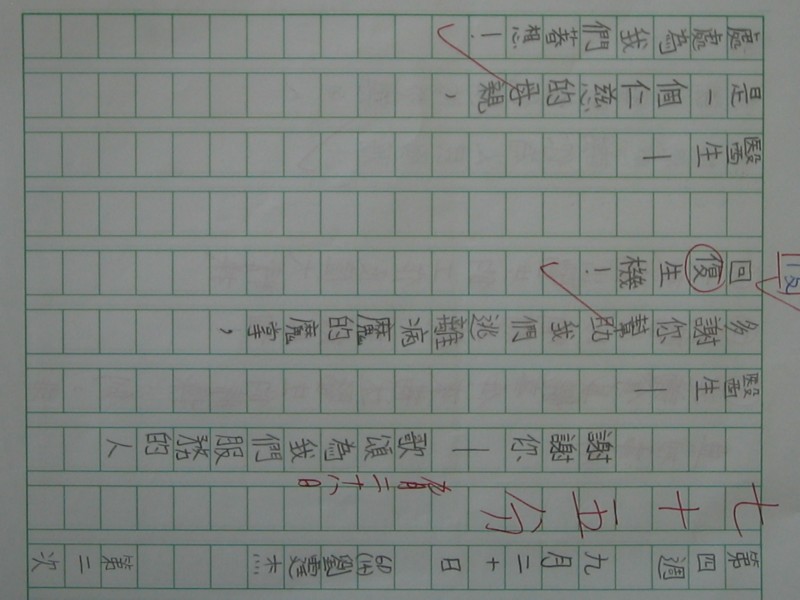 第四週 九月二十日 劉 杰 第二次
七十五分
九月二十八日
謝謝你—歌頌為我們服務的人
醫生—
多謝你幫助我們逃離病魔的魔掌，
回 生機！
醫生—
是一個仁慈的母親，
處處為我們著想！